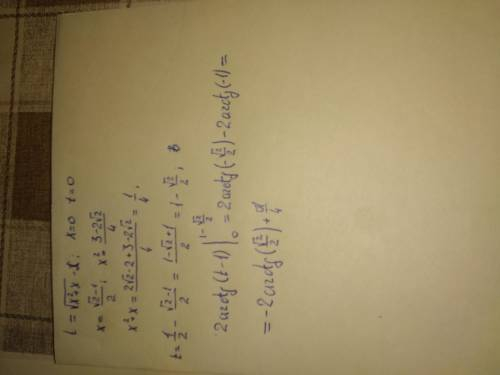 t = √(x²+x) - x; x=0 t=0
x = (√2-1)/2; x² = (3-2√2)/4
x²+x = (2√2-2+3-2√2)/4 = 1/4;
t = 1/2 - (√2-1)/2 = (1-√2+1)/2 = 1 - √2/2;
2arctg(t-1)|₀^(1-√2/2) = 2arctg(-√2/2) - 2arctg(-1) =
= -2arctg(√2/2) + π/4